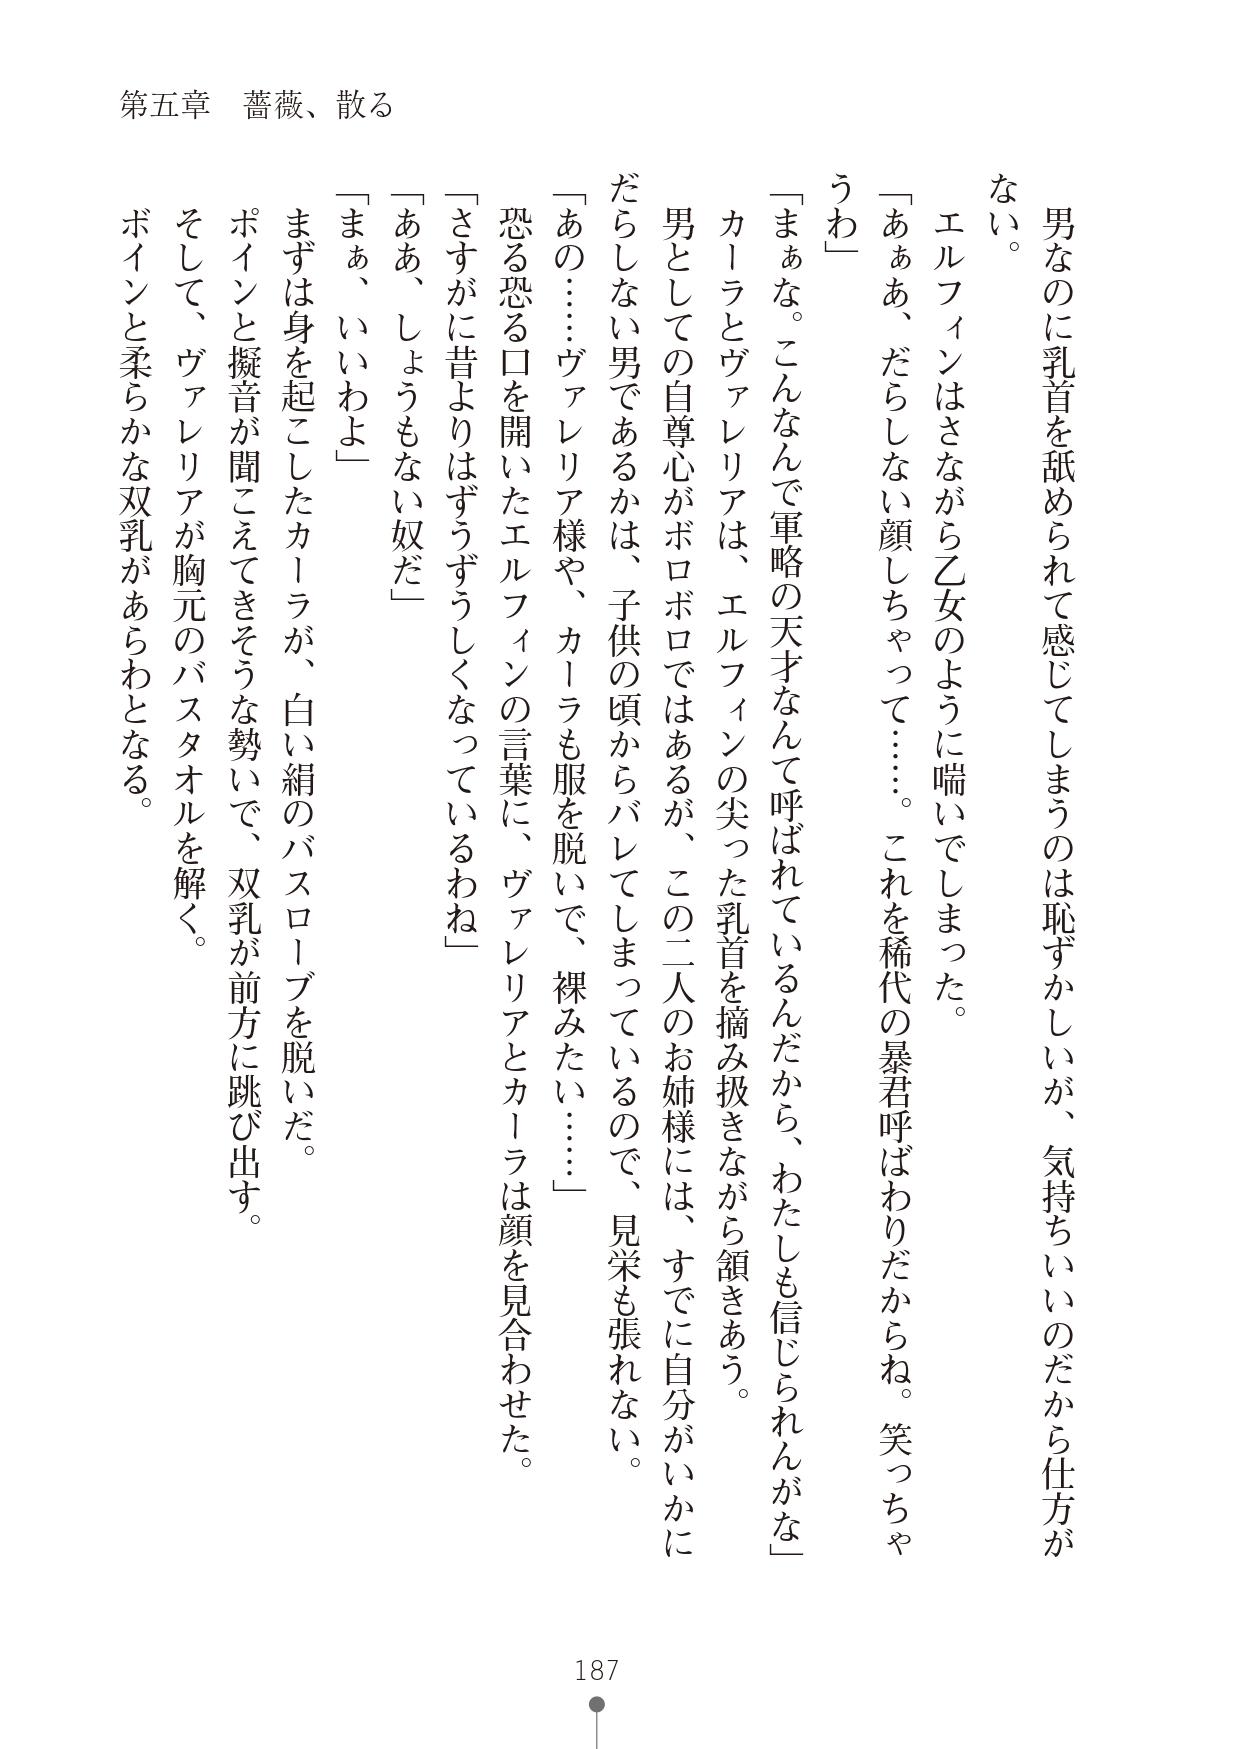 第五章　薔薇、散る
　男なのに乳首を舐められて感じてしまうのは恥ずかしいが、気持ちいいのだから仕方が
ない。
　エルフィンはさながら乙女のように喘いでしまった。
「あぁあ、だらしない顔しちゃって……。これを稀代の暴君呼ばわりだからね。笑っちゃ
うわ」
「まぁな。こんなんで軍略の天才なんて呼ばれているんだから、わたしも信じられんがな」
　カーラとヴァレリアは、エルフィンの尖った乳首を摘み扱きながら頷きあう。
　男としての自尊心がボロボロではあるが、この二人のお姉様には、すでに自分がいかに
だらしない男であるかは、子供の頃からバレてしまっているので、見栄も張れない。
「あの……ヴァレリア様や、カーラも服を脱いで、裸みたい……」
　恐る恐る口を開いたエルフィンの言葉に、ヴァレリアとカーラは顔を見合わせた。
「さすがに昔よりはずうずうしくなっているわね」
「ああ、しょうもない奴だ」
「まぁ、いいわよ」
　まずは身を起こしたカーラが、白い絹のバスローブを脱いだ。
　ポインと擬音が聞こえてきそうな勢いで、双乳が前方に跳び出す。
　そして、ヴァレリアが胸元のバスタオルを解く。
　ボインと柔らかな双乳があらわとなる。
187